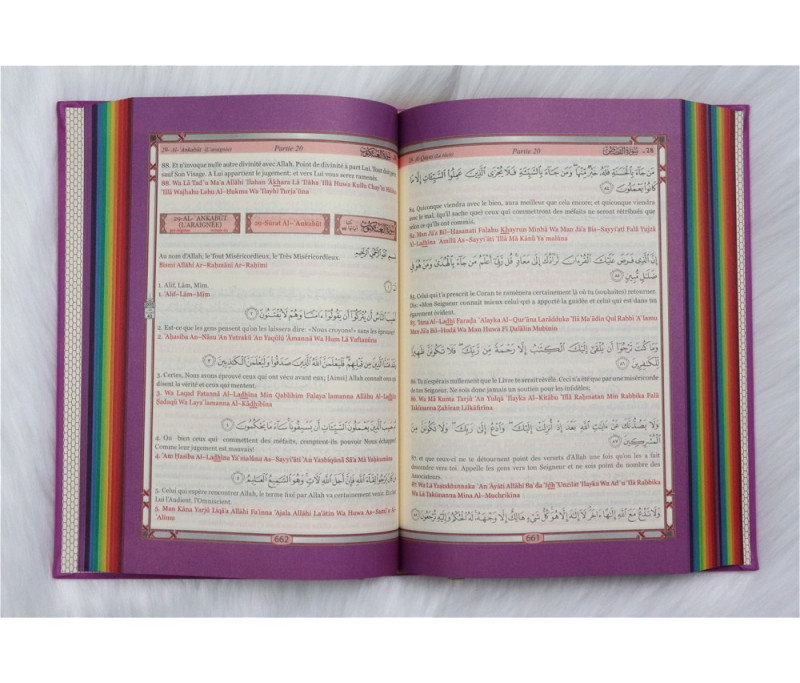 28- Al-Qasas (Le récit)
Partie 20
مَن جَآءَ بِٱلْحَسَنَةِ فَلَهُۥ خَيْرٌ مِّنْهَا ۖ وَمَن جَآءَ بِٱلسَّيِّئَةِ فَلَا يُجْزَى ٱلَّذِينَ عَمِلُوا۟ ٱلسَّيِّـَٔاتِ إِلَّا مَا
كَانُوا۟ يَعْمَلُونَ ٨٤
84. Quiconque viendra avec le bien, aura meilleur que cela encore; et quiconque viendra
avec le mal, (qu'il sache que) ceux qui commettront des méfaits ne seront rétribués que
selon ce qu'ils ont commis.
84. Man Jā'a Bil-Ĥasanati Falahu Khayrun Minhā Wa Man Jā'a Bis-Sayyi'ati Falā Yujzá
Al-Ladhīna `Amilū As-Sayyi'āti 'Illā Mā Kānū Ya`malūna
إِنَّ ٱلَّذِى فَرَضَ عَلَيْكَ ٱلْقُرْءَانَ لَرَآدُّكَ إِلَىٰ مَعَادٍ ۚ قُل رَّبِّىٓ أَعْلَمُ مَن جَآءَ بِٱلْهُدَىٰ وَمَنْ هُوَ فِى
ضَلَٰلٍ مُّبِينٍ ٨٥
85. Celui qui t'a prescrit le Coran te ramènera certainement là où tu (souhaites) retourner.
Dis: «Mon Seigneur connaît mieux celui qui a apporté la guidée et celui qui est dans un
égarement évident.
85. 'Inna Al-Ladhī Farađa `Alayka Al-Qur'āna Larādduka 'Ilá Ma`ādin Qul Rabbī 'A`lamu
Man Jā'a Bil-Hudá Wa Man Huwa Fī Đalālin Mubīnin
وَمَا كُنتَ تَرْجُوٓا۟ أَن يُلْقَىٰٓ إِلَيْكَ ٱلْكِتَٰبُ إِلَّا رَحْمَةً مِّن رَّبِّكَ ۖ فَلَا تَكُونَنَّ ظَهِيرًا
لِّلْكَٰفِرِينَ ٨٦
86. Tu n'espérais nullement que le Livre te serait révélé. Ceci n'a été que par une miséricorde
de ton Seigneur. Ne sois donc jamais un soutien pour les infidèles;
86. Wa Mā Kunta Tarjū 'An Yulqá 'Ilayka Al-Kitābu 'Illā Raĥmatan Min Rabbika Falā
Takūnanna Žahīrān Lilkāfirīna
وَلَا يَصُدُّنَّكَ عَنْ ءَايَٰتِ ٱللَّهِ بَعْدَ إِذْ أُنزِلَتْ إِلَيْكَ ۖ وَٱدْعُ إِلَىٰ رَبِّكَ ۖ وَلَا تَكُونَنَّ مِنَ
ٱلْمُشْرِكِينَ ٨٧
87. et que ceux-ci ne te détournent point des versets d'Allah une fois qu'on les a fait
descendre vers toi. Appelle les gens vers ton Seigneur et ne sois point du nombre des
Associateurs.
87. Wa Lā Yaşuddunnaka `An 'Āyāti Allāhi Ba`da 'Idh 'Unzilat 'Ilayka Wa Ad`u 'Ilá Rabbika
Wa Lā Takūnanna Mina Al-Mushrikīna
وَلَا تَدْعُ مَعَ ٱللَّهِ إِلَٰهًا ءَاخَرَ ۘ لَآ إِلَٰهَ إِلَّا هُوَ ۚ كُلُّ شَىْءٍ هَالِكٌ إِلَّا وَجْهَهُۥ ۚ لَهُ ٱلْحُكْمُ وَإِلَيْهِ تُرْجَعُونَ ٨٨
661
29- Al-'Ankabūt (L'araignée)
Partie 20
88. Et n'invoque nulle autre divinité avec Allah. Point de divinité à part Lui. Tout doit périr,
sauf Son Visage. A Lui appartient le jugement; et vers Lui vous serez ramenés.
88. Wa Lā Tad`u Ma`a Allāhi 'Ilahan 'Ākhara Lā 'Ilāha 'Illā Huwa Kullu Chay'in Hālikun
'Illā Wajhahu Lahu Al-Ĥukmu Wa 'Ilayhi Turja`ūna
29-AL-'ANKABŪT
(L'ARAIGNÉE)
29-Sūrat Al-`Ankabūt
Au nom d'Allah, le Tout Miséricordieux, le Très Miséricordieux.
Bismi Allāhi Ar-Raĥmāni Ar-Raĥīmi
بِسْمِ ٱللَّهِ ٱلرَّحْمَٰنِ ٱلرَّحِيمِ
1. Alif, Lām, Mīm.
1. 'Alif-Lām-Mīm
النَّاسُ أَن يُتْرَكُوٓا۟ أَن يَقُولُوٓا۟ ءَامَنَّا وَهُمْ لَا يُفْتَنُونَ ٢
2. Est-ce que les gens pensent qu'on les laissera dire: «Nous croyons!» sans les éprouver?
2. 'Aĥasiba An-Nāsu 'An Yutrakū 'An Yaqūlū 'Āmannā Wa Hum Lā Yuftanūna
ٱلَّذِينَ مِن قَبْلِهِمْ ۖ فَلَيَعْلَمَنَّ ٱللَّهُ ٱلَّذِينَ صَدَقُوا۟ وَلَيَعْلَمَنَّ ٱلْكَٰذِبِينَ ٣
3. Certes, Nous avons éprouvé ceux qui ont vécu avant eux; [Ainsi] Allah connaît ceux qui
disent la vérité et ceux qui mentent.
3. Wa Laqad Fatannā Al-Ladhīna Min Qablihim Falaya`lamanna Allāhu Al-Ladhīna
Şadaqū Wa Laya`lamanna Al-Kādhibīna
ٱلَّذِينَ يَعْمَلُونَ ٱلسَّيِّـَٔاتِ أَن يَسْبِقُونَا ۚ سَآءَ مَا يَحْكُمُونَ ٤
4. Ou bien ceux qui commettent des méfaits, comptent-ils pouvoir Nous échapper?
Comme leur jugement est mauvais!
4. 'Am Ĥasiba Al-Ladhīna Ya`malūna As-Sayyi'āti 'An Yasbiqūnā Sā'a Mā Yaĥkumūna
كَانَ يَرْجُوا۟ لِقَآءَ ٱللَّهِ فَإِنَّ أَجَلَ ٱللَّهِ لَـَٔاتٍ ۚ وَهُوَ ٱلسَّمِيعُ ٱلْعَلِيمُ ٥
5. Celui qui espère rencontrer Allah, le terme fixé par Allah va certainement venir. Et c'est
Lui l'Audient, l'Omniscient.
5. Man Kāna Yarjū Liqā'a Allāhi Fa'inna 'Ajala Allāhi La'ātin Wa Huwa As-Samī`u Al-
`Alīmu
662